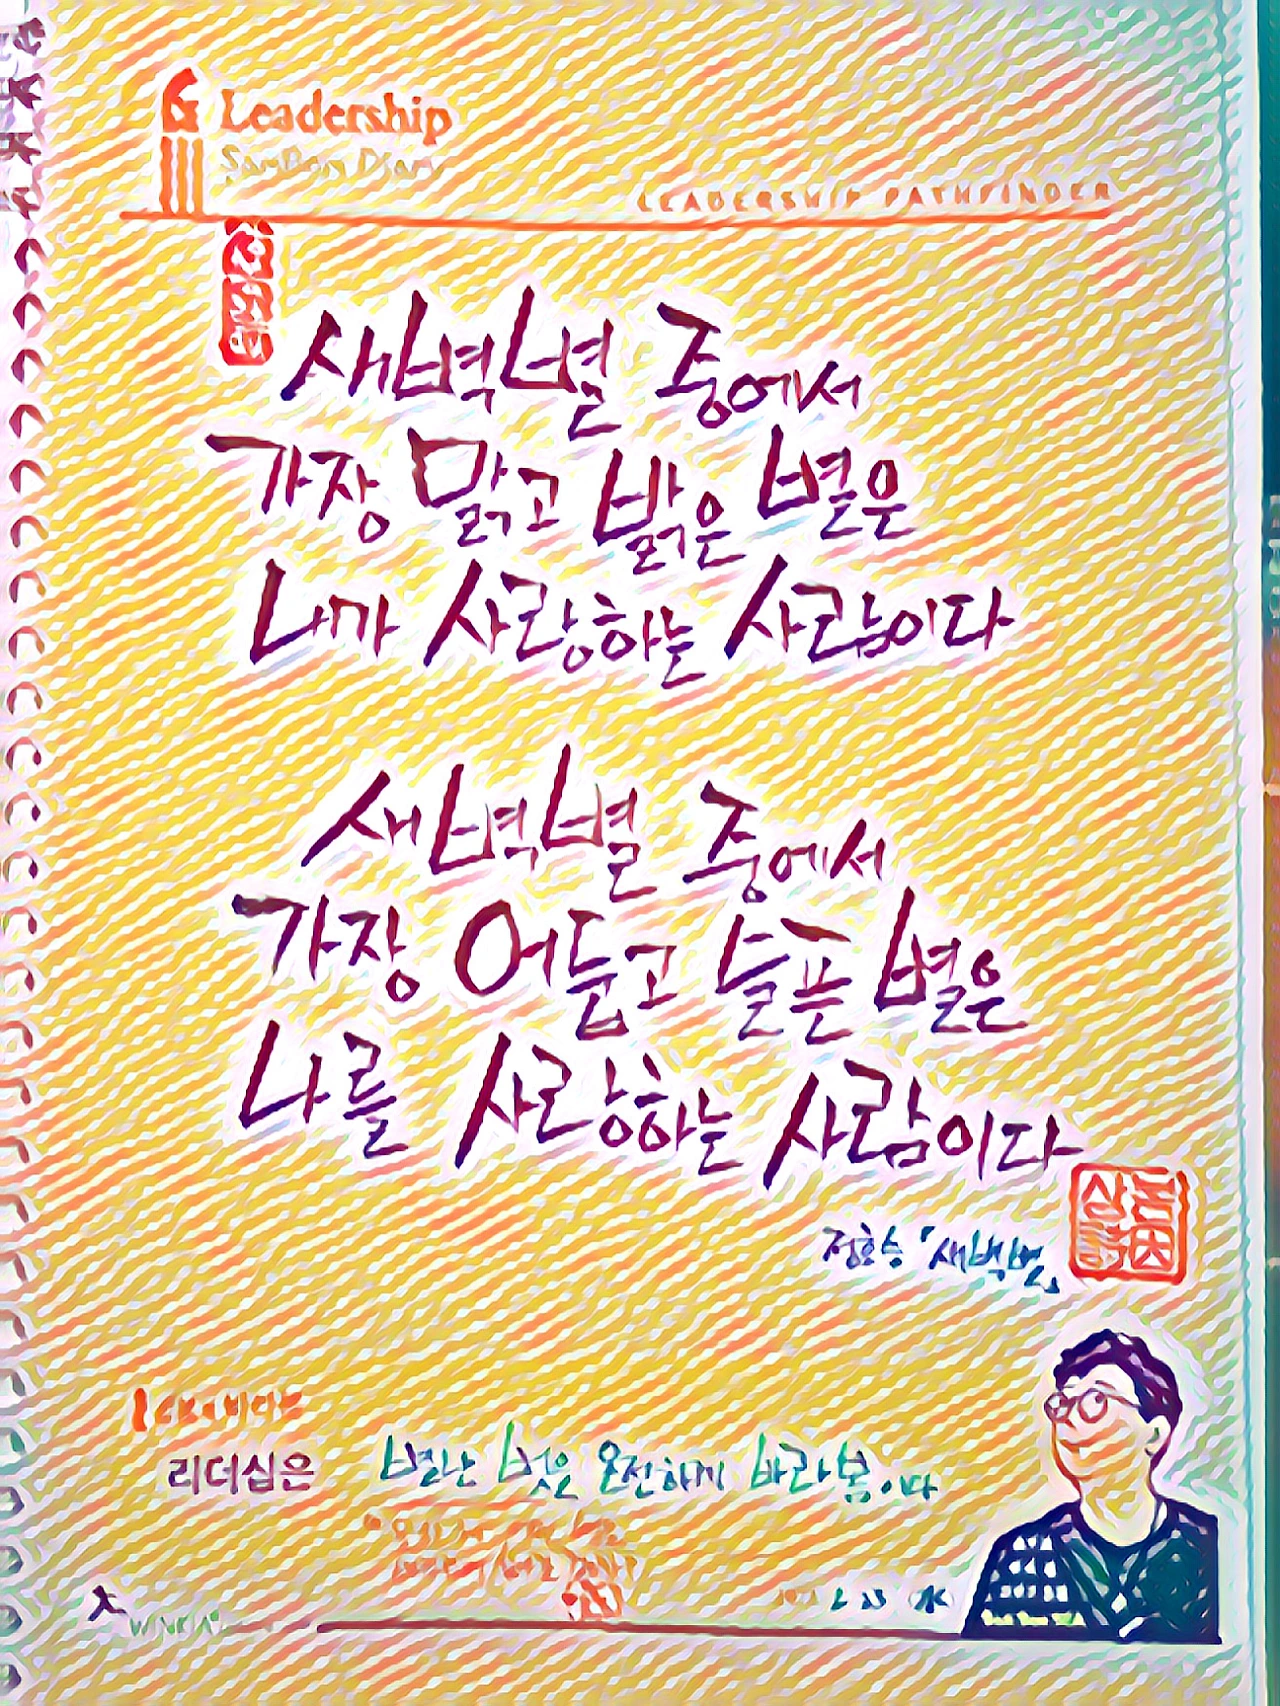 Leadership
LEADERSHIP PATHFINDER
새벽별 중에서
가장 맑고 밝은 별은
내가 사랑하는 사람이다
새벽별 중에서
가장 어둡고 슬픈 별은
나를 사랑하는 사람이다
정호승 「새벽별」
리더십은 별난 벗을 온전하게 바라봄이다